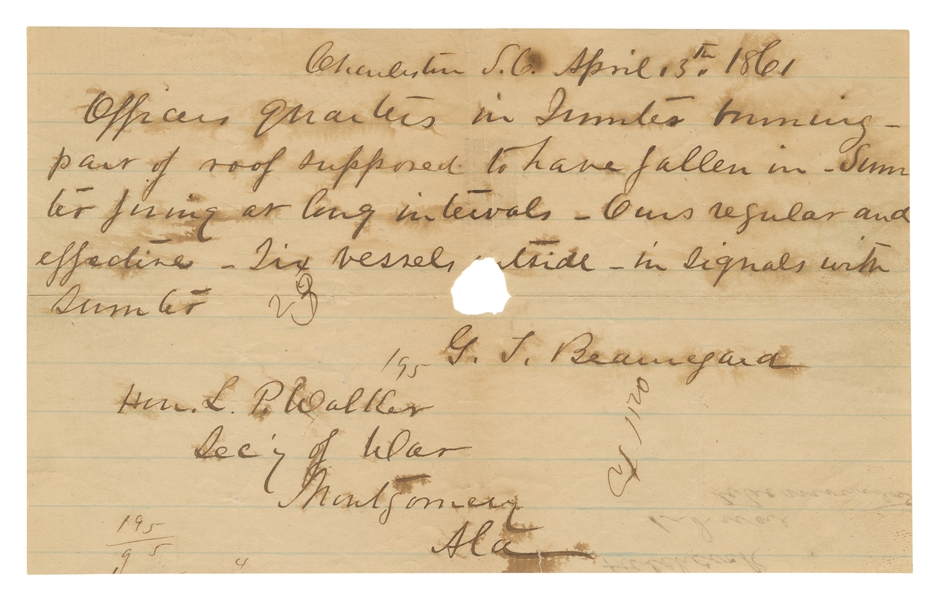 Charleston S.C. April 13th. 1861
Officers quarters in Sumter burning -
part of roof supposed to have fallen in - Sum
ter firing at long intervals - Ours regular and
effective - Six vessels outside - in signals with
Sumter 23
G. T. Beauregard
195
Hon. L. P. Walker
Sec'y of War
Montgomery
Ala
195
95
4